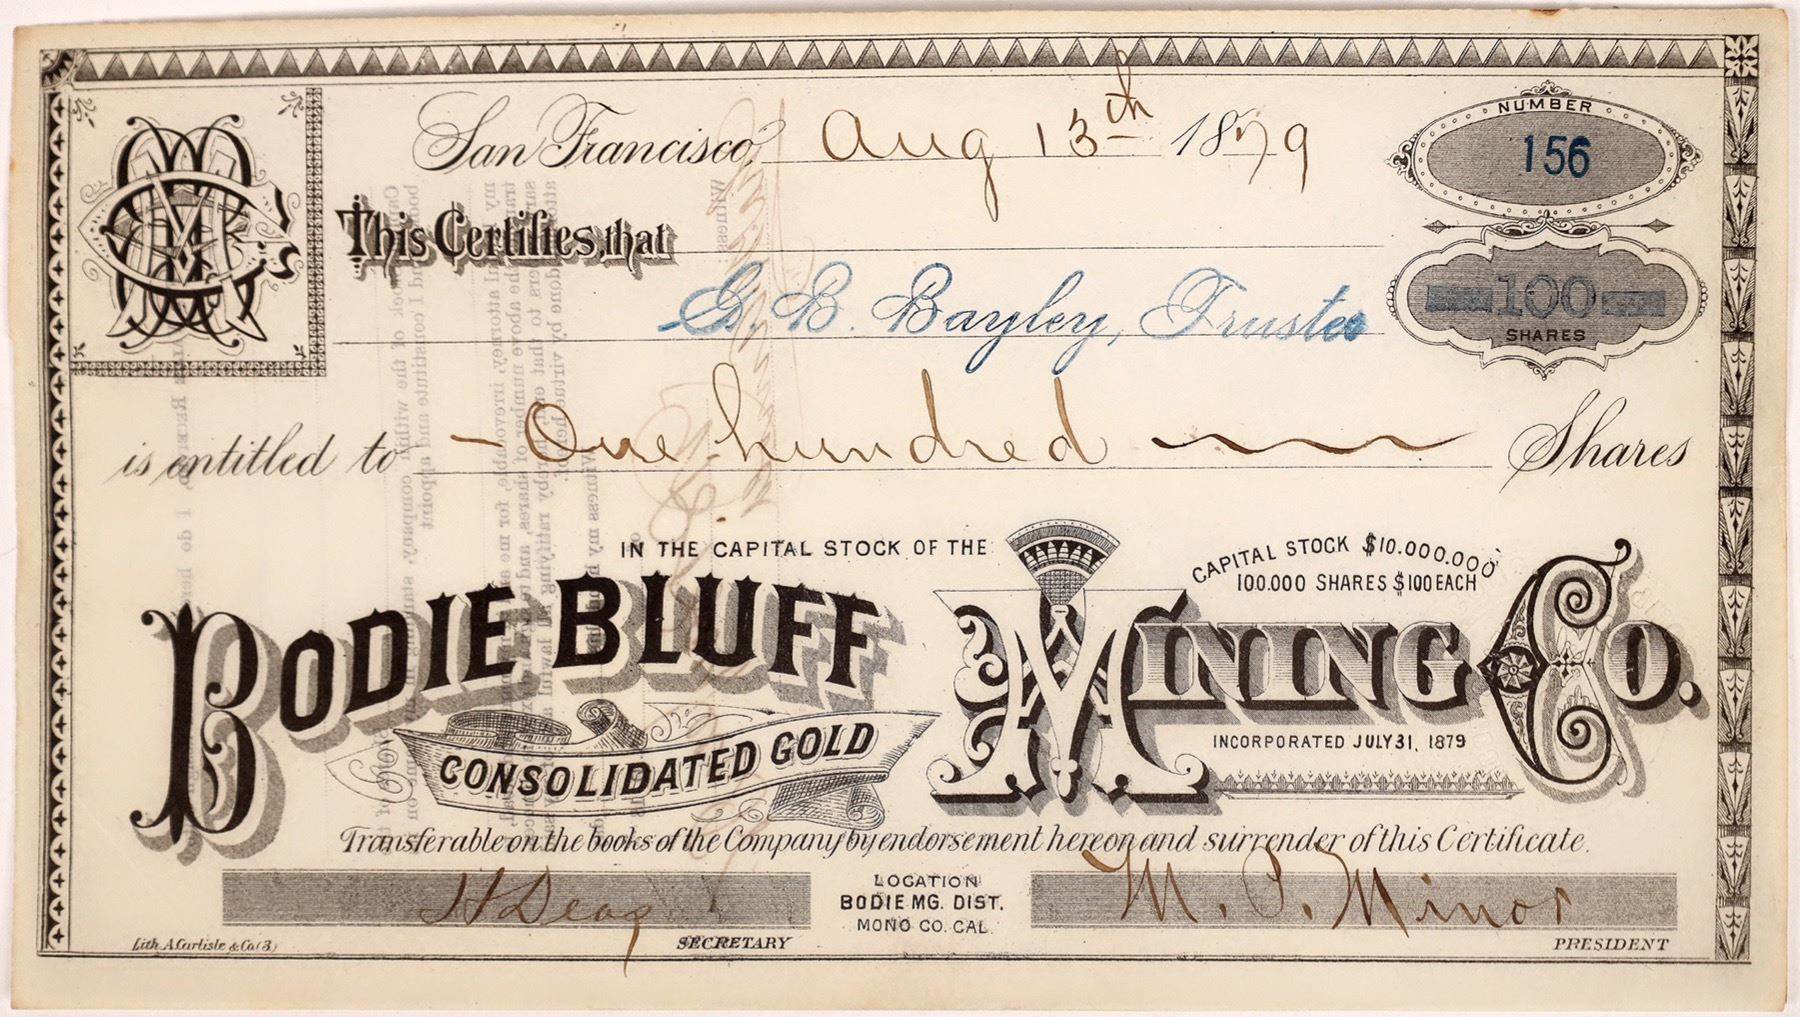 San Francisco, Aug 13th 1879
NUMBER
156
This Certifies, that
G. B. Bayley, Trustee
100
SHARES
is entitled to One hundred Shares
IN THE CAPITAL STOCK OF THE
CAPITAL STOCK $10.000.000
100.000 SHARES $100 EACH
BODIE BLUFF
CONSOLIDATED GOLD
MINING CO.
INCORPORATED JULY 31, 1879
Transferable on the books of the Company by endorsement hereon and surrender of this Certificate.
LOCATION
BODIE MG. DIST.
MONO CO. CAL.
H Deas
M. C. Minor
Lith. A. Carlisle & Co. (3)
SECRETARY
PRESIDENT